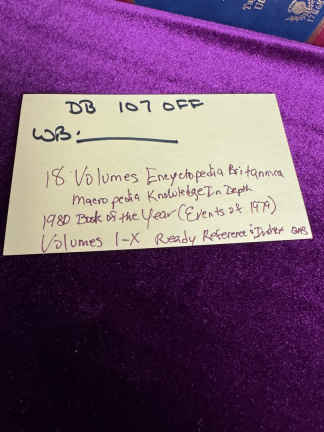 DB 107 OFF
WB:
18 Volumes Encyclopedia Britannica
Macropedia Knowledge In Depth
1980 Book of the Year (Events of 1979)
Volumes I-X Ready Reference & Index